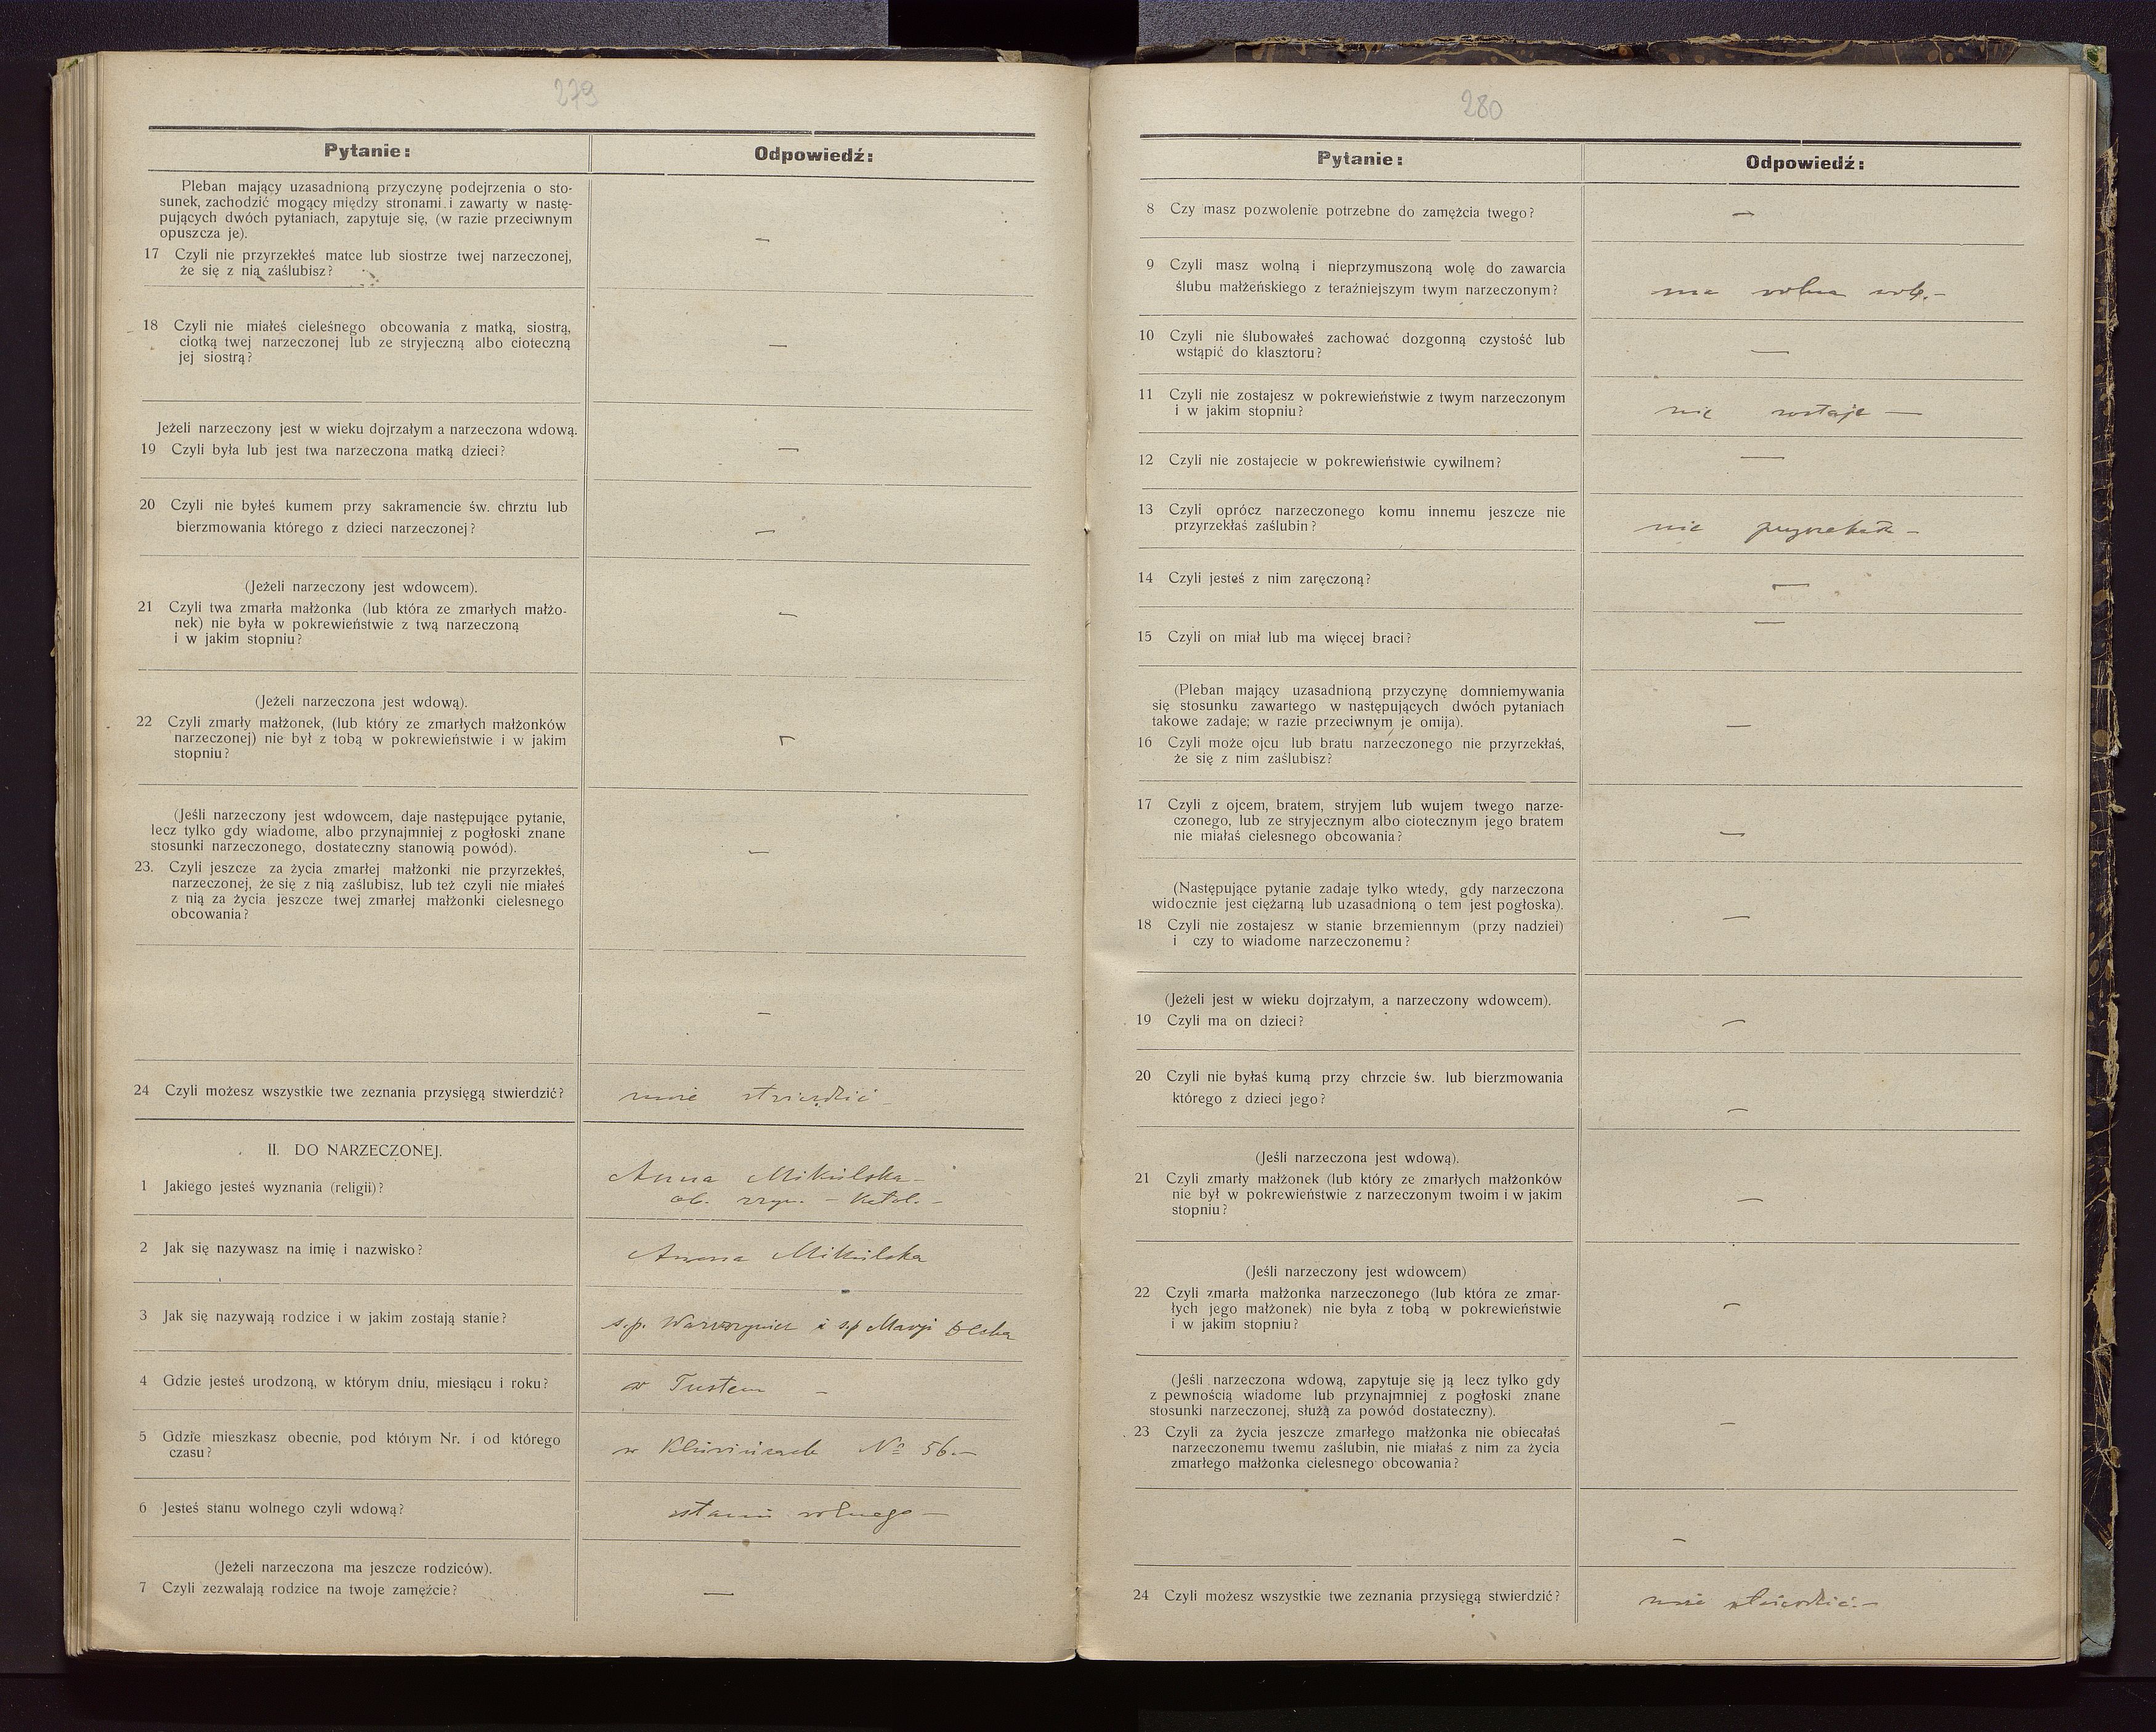 279
Pytanie:
Odpowiedź:
Pleban mający uzasadnioną przyczynę podejrzenia o sto-
sunek, zachodzić mogący między stronami i zawarty w nastę-
pujących dwóch pytaniach, zapytuje się, (w razie przeciwnym
opuszcza je).
17 Czyli nie przyrzekłeś matce lub siostrze twej narzeczonej,
że się z nią zaślubisz?
—
18 Czyli nie miałeś cieleśnego obcowania z matką, siostrą,
ciotką twej narzeczonej lub ze stryjeczną albo cioteczną
jej siostrą?
—
Jeżeli narzeczony jest w wieku dojrzałym a narzeczona wdową.
19 Czyli była lub jest twa narzeczona matką dzieci?
—
20 Czyli nie byłeś kumem przy sakramencie św. chrztu lub
bierzmowania którego z dzieci narzeczonej?
—
(Jeżeli narzeczony jest wdowcem).
21 Czyli twa zmarła małżonka (lub która ze zmarłych małżo-
nek) nie była w pokrewieństwie z twą narzeczoną
i w jakim stopniu?
—
(Jeżeli narzeczona jest wdową).
22 Czyli zmarły małżonek, (lub który ze zmarłych małżonków
narzeczonej) nie był z tobą w pokrewieństwie i w jakim
stopniu?
—
(Jeśli narzeczony jest wdowcem, daje następujące pytanie,
lecz tylko gdy wiadome, albo przynajmniej z pogłoski znane
stosunki narzeczonego, dostateczny stanowią powód).
23. Czyli jeszcze za życia zmarłej małżonki nie przyrzekłeś,
narzeczonej, że się z nią zaślubisz, lub też czyli nie miałeś
z nią za życia jeszcze twej zmarłej małżonki cielesnego
obcowania?
—
—
24 Czyli możesz wszystkie twe zeznania przysięgą stwierdzić?
może stwierdzić —
II. DO NARZECZONEJ.
1 Jakiego jesteś wyznania (religii)?
Anna Mikulska —
ob. rzym. — katol. —
2 Jak się nazywasz na imię i nazwisko?
Anna Mikulska
3 Jak się nazywają rodzice i w jakim zostają stanie?
s.p. Wawrzyniec i sp Maryi
4 Gdzie jesteś urodzoną, w którym dniu, miesiącu i roku?
w Tustem —
5 Gdzie mieszkasz obecnie, pod którym Nr. i od którego
czasu?
w Kluwińcach No 56. —
6 Jesteś stanu wolnego czyli wdową?
stanu wolnego —
(Jeżeli narzeczona ma jeszcze rodziców).
7 Czyli zezwalają rodzice na twoje zamęźcie?
—
280
Pytanie:
Odpowiedź:
8 Czy masz pozwolenie potrzebne do zamężcia twego?
—
9 Czyli masz wolną i nieprzymuszoną wolę do zawarcia
ślubu małżeńskiego z teraźniejszym twym narzeczonym?
ma wolna wolę. —
10 Czyli nie ślubowałeś zachować dozgonną czystość lub
wstąpić do klasztoru?
—
11 Czyli nie zostajesz w pokrewieństwie z twym narzeczonym
i w jakim stopniu?
nie zostaje —
12 Czyli nie zostajecie w pokrewieństwie cywilnem?
—
13 Czyli oprócz narzeczonego komu innemu jeszcze nie
przyrzekłaś zaślubin?
nie przyrzekła —
14 Czyli jesteś z nim zaręczoną?
—
15 Czyli on miał lub ma więcej braci?
—
(Pleban mający uzasadnioną przyczynę domniemywania
się stosunku zawartego w następujących dwóch pytaniach
takowe zadaje; w razie przeciwnym je omija).
16 Czyli może ojcu lub bratu narzeczonego nie przyrzekłaś,
że się z nim zaślubisz?
—
17 Czyli z ojcem, bratem, stryjem lub wujem twego narze-
czonego, lub ze stryjecznym albo ciotecznym jego bratem
nie miałaś cielesnego obcowania?
—
(Następujące pytanie zadaje tylko wtedy, gdy narzeczona
widocznie jest ciężarną lub uzasadnioną o tem jest pogłoska).
18 Czyli nie zostajesz w stanie brzemiennym (przy nadziei)
i czy to wiadome narzeczonemu?
—
(Jeżeli jest w wieku dojrzałym, a narzeczony wdowcem).
19 Czyli ma on dzieci?
—
20 Czyli nie byłaś kumą przy chrzcie św. lub bierzmowania
którego z dzieci jego?
—
(Jeśli narzeczona jest wdową).
21 Czyli zmarły małżonek (lub który ze zmarłych małżonków
nie był w pokrewieństwie z narzeczonym twoim i w jakim
stopniu?
—
(Jeśli narzeczony jest wdowcem)
22 Czyli zmarła małżonka narzeczonego (lub która ze zmar-
łych jego małżonek) nie była z tobą w pokrewieństwie
i w jakim stopniu?
—
(Jeśli narzeczona wdową, zapytuje się ją lecz tylko gdy
z pewnością wiadome lub przynajmniej z pogłoski znane
stosunki narzeczonej, służą za powód dostateczny).
23 Czyli za życia jeszcze zmarłego małżonka nie obiecałaś
narzeczonemu twemu zaślubin, nie miałaś z nim za życia
zmarłego małżonka cielesnego obcowania?
—
—
24 Czyli możesz wszystkie twe zeznania przysięgą stwierdzić?
może stwierdzić. —